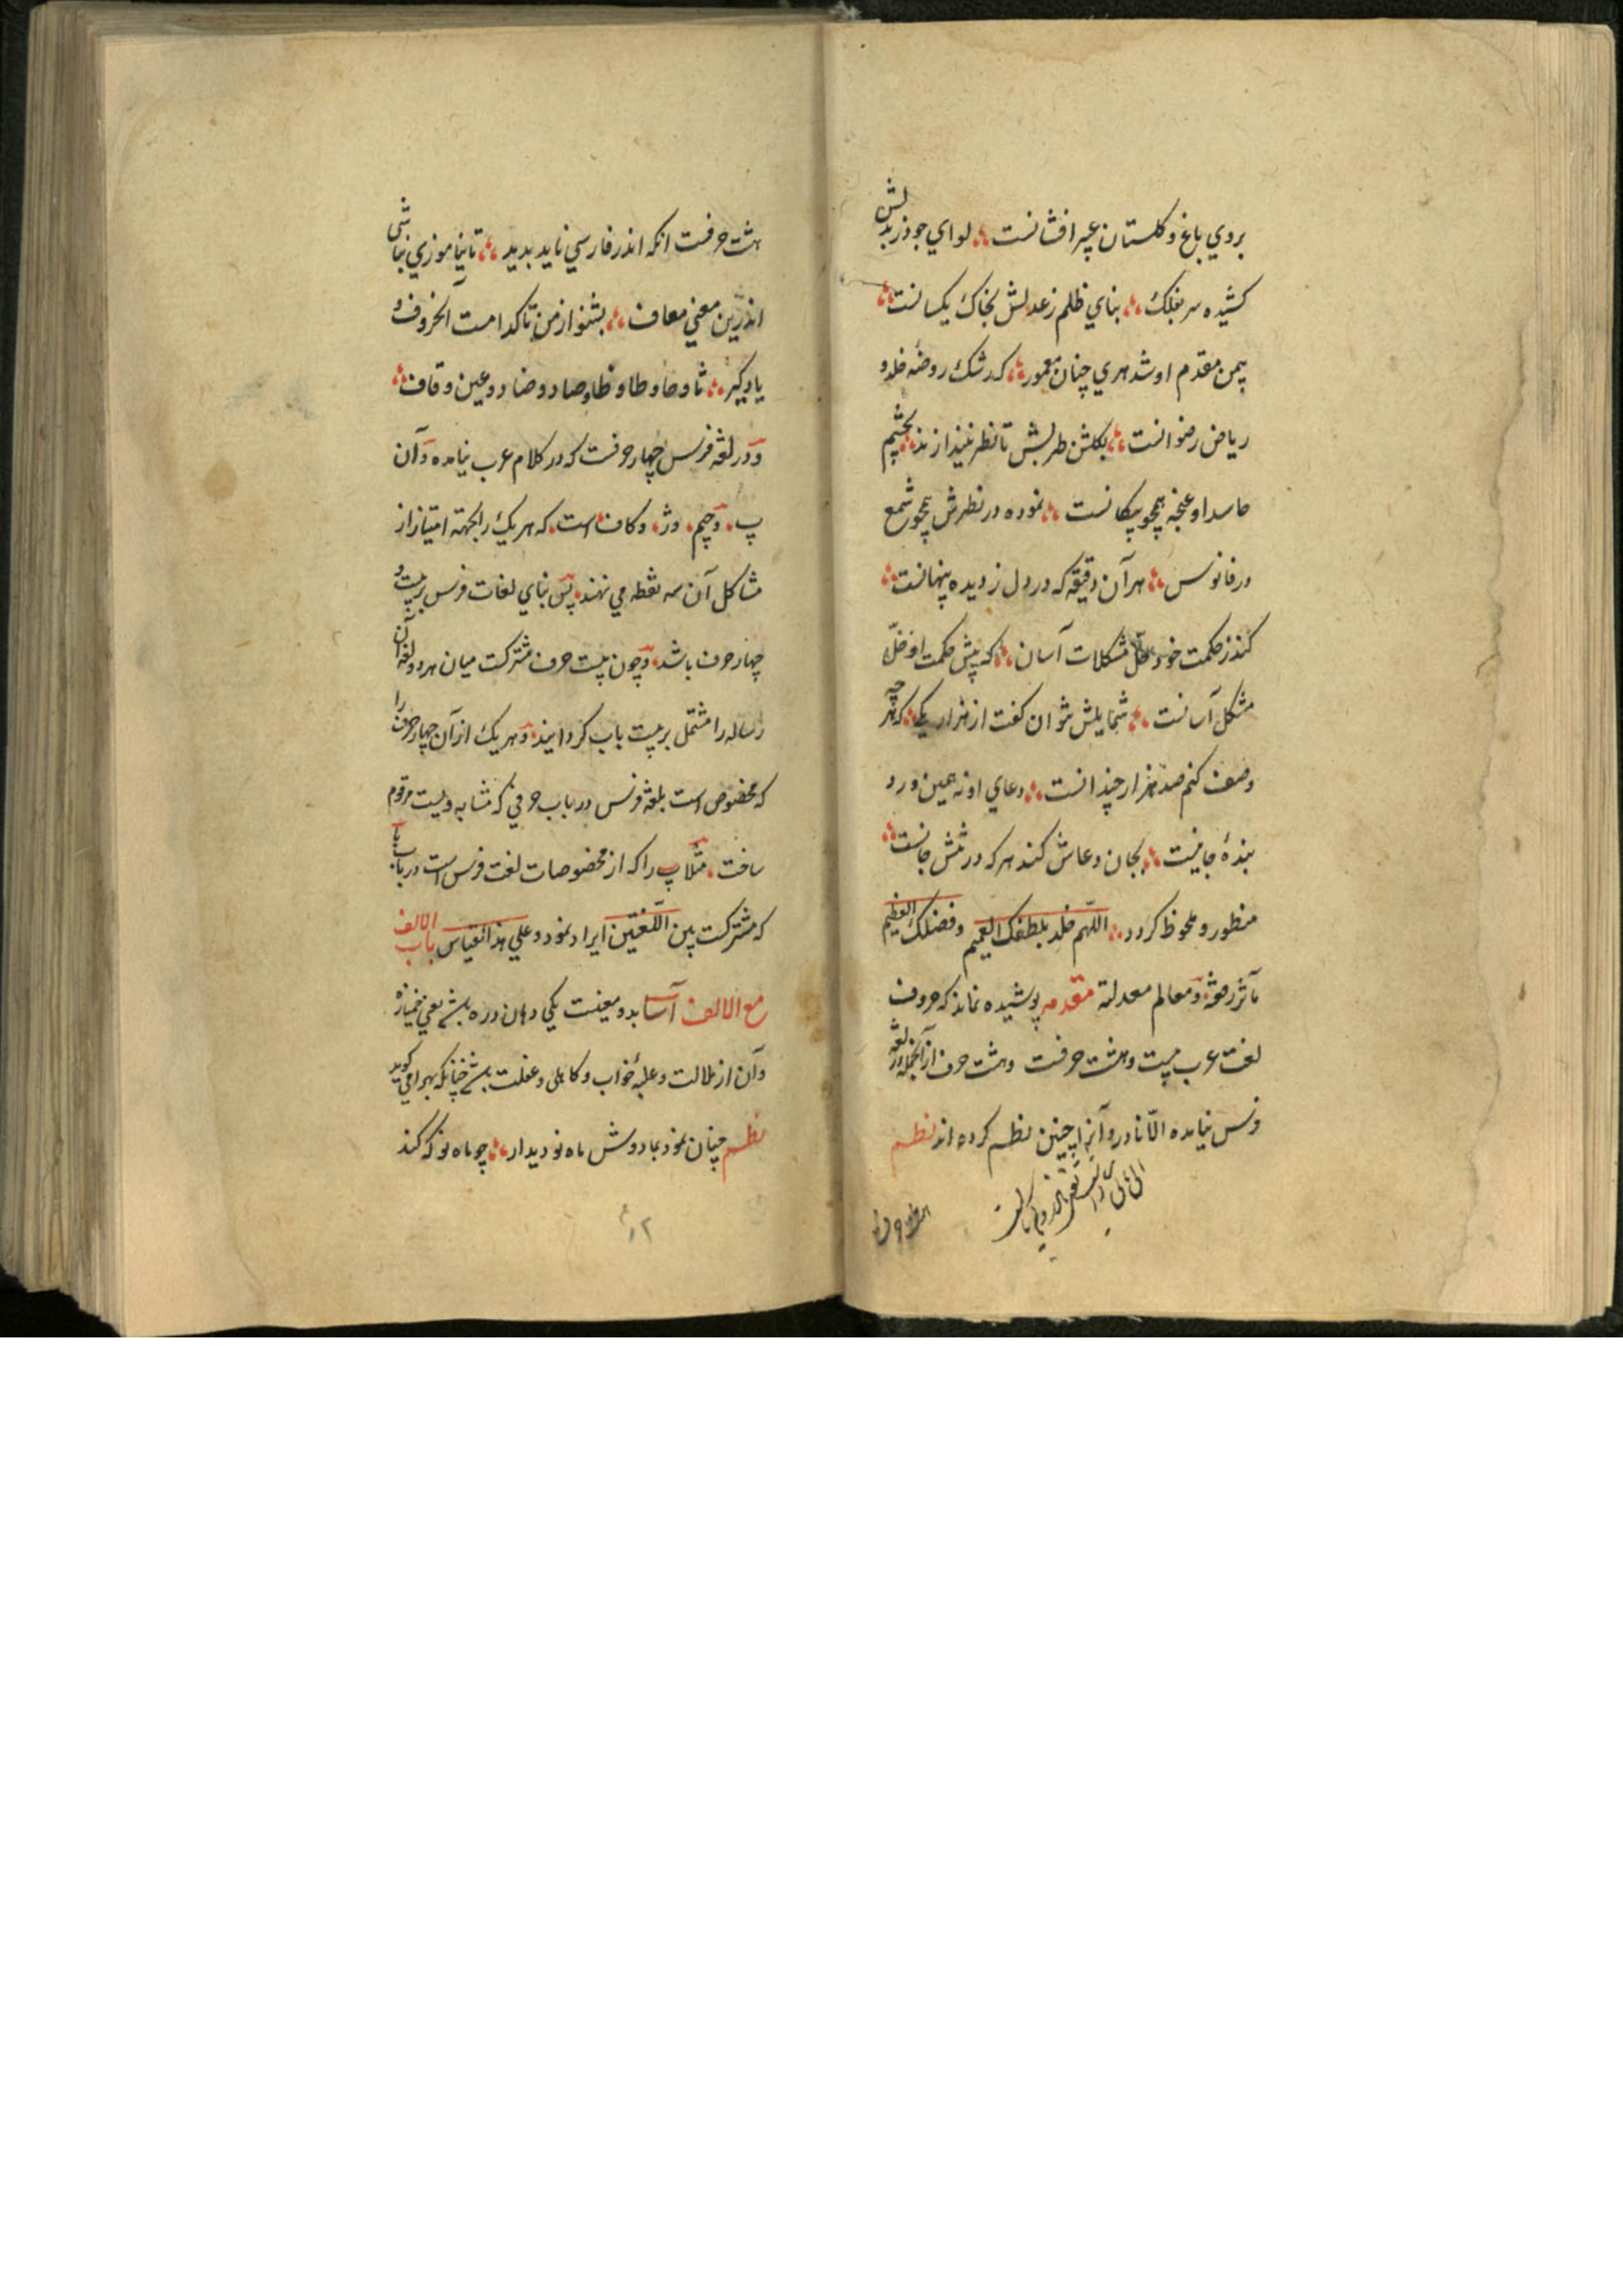 بروي باغ و کلستان عبیر افشانست لواي جود ز بدلش
کشیده سر بفلک بناي ظلم ز عدلش بخاک یکسانست
بیمن مقدم او شد هري چنان معمور که رشک روضه خلد و
ریاض رضوانست بکلشن طربش تا نظر نیندازند بچشم
حاسد او غنچه همچو پیکانست نموده در نظرش همچو شمع
در فانوس هر آن دقیقه که در دل ز دیده پنهانست
کند ز حکمت خود حل مشکلات آسان که پیش حکمت او حلّ
مشکل آسانست شمایلش نتوان کفت از هزار یکی که هر چه
وصف کنم صد هزار چندانست دعاي او نه همین ورد
بندهٔ جانیست بجان دعاش کند هر که در تنش جانست
منظور و ملحوظ کردد اللّهم خلد بلطفک العمیم و فضلک العظیم
مآثر رفعته و معالم معدلته مقدمه پوشیده نماند که حروف
لغت عرب بیست و هشت حرفست و هشت حرف از آنجمله در لغة
فرس نیامده الّا نادر و آنرا چنین نظم کرده اند نظم
هشت حرفست انکه اندر فارسي ناید بدید تا نیاموزي نباشی
اندرین معني معاف بشنو از من تا کدامست آن حروف و
یاد کیر ثا و حا و طا و ظا و صاد و ضاد و عین و قاف
و در لغة فرس چهار حرفست که در کلام عرب نیامده و آن
پ و چیم و ژ و کاف است که هر یک را بجهة امتیاز از
مشاکل آن سه نقطه مي نهند پس بناي لغات فرس بر بیست و
چهار حرف باشد و چون بیست حرف مشترکست میان هر دو لغة آن
رساله را مشتمل بر بیست باب کردانید و هر یک از آن چهار حرف را
که مخصوص است بلغة فرس در باب حرفي که مشابه ویست مرقوم
ساخت مثلا پ را که از مخصوصات لغت فرس است در باب با
که مشترکست بین اللّغتین ایراد نمود و علي هذا القیاس باب الالف
مع الالف آسا بدو معنیست یکي دهان دره باشد یعني خمیازه
و آن از ملالت و غلبهٔ خواب و کاهلی و غفلت باشد چنانکه بهرامي کوید
نظم چنان نمود بما دوش ماه نو دیدار چو ماه نو که کند
۱۲